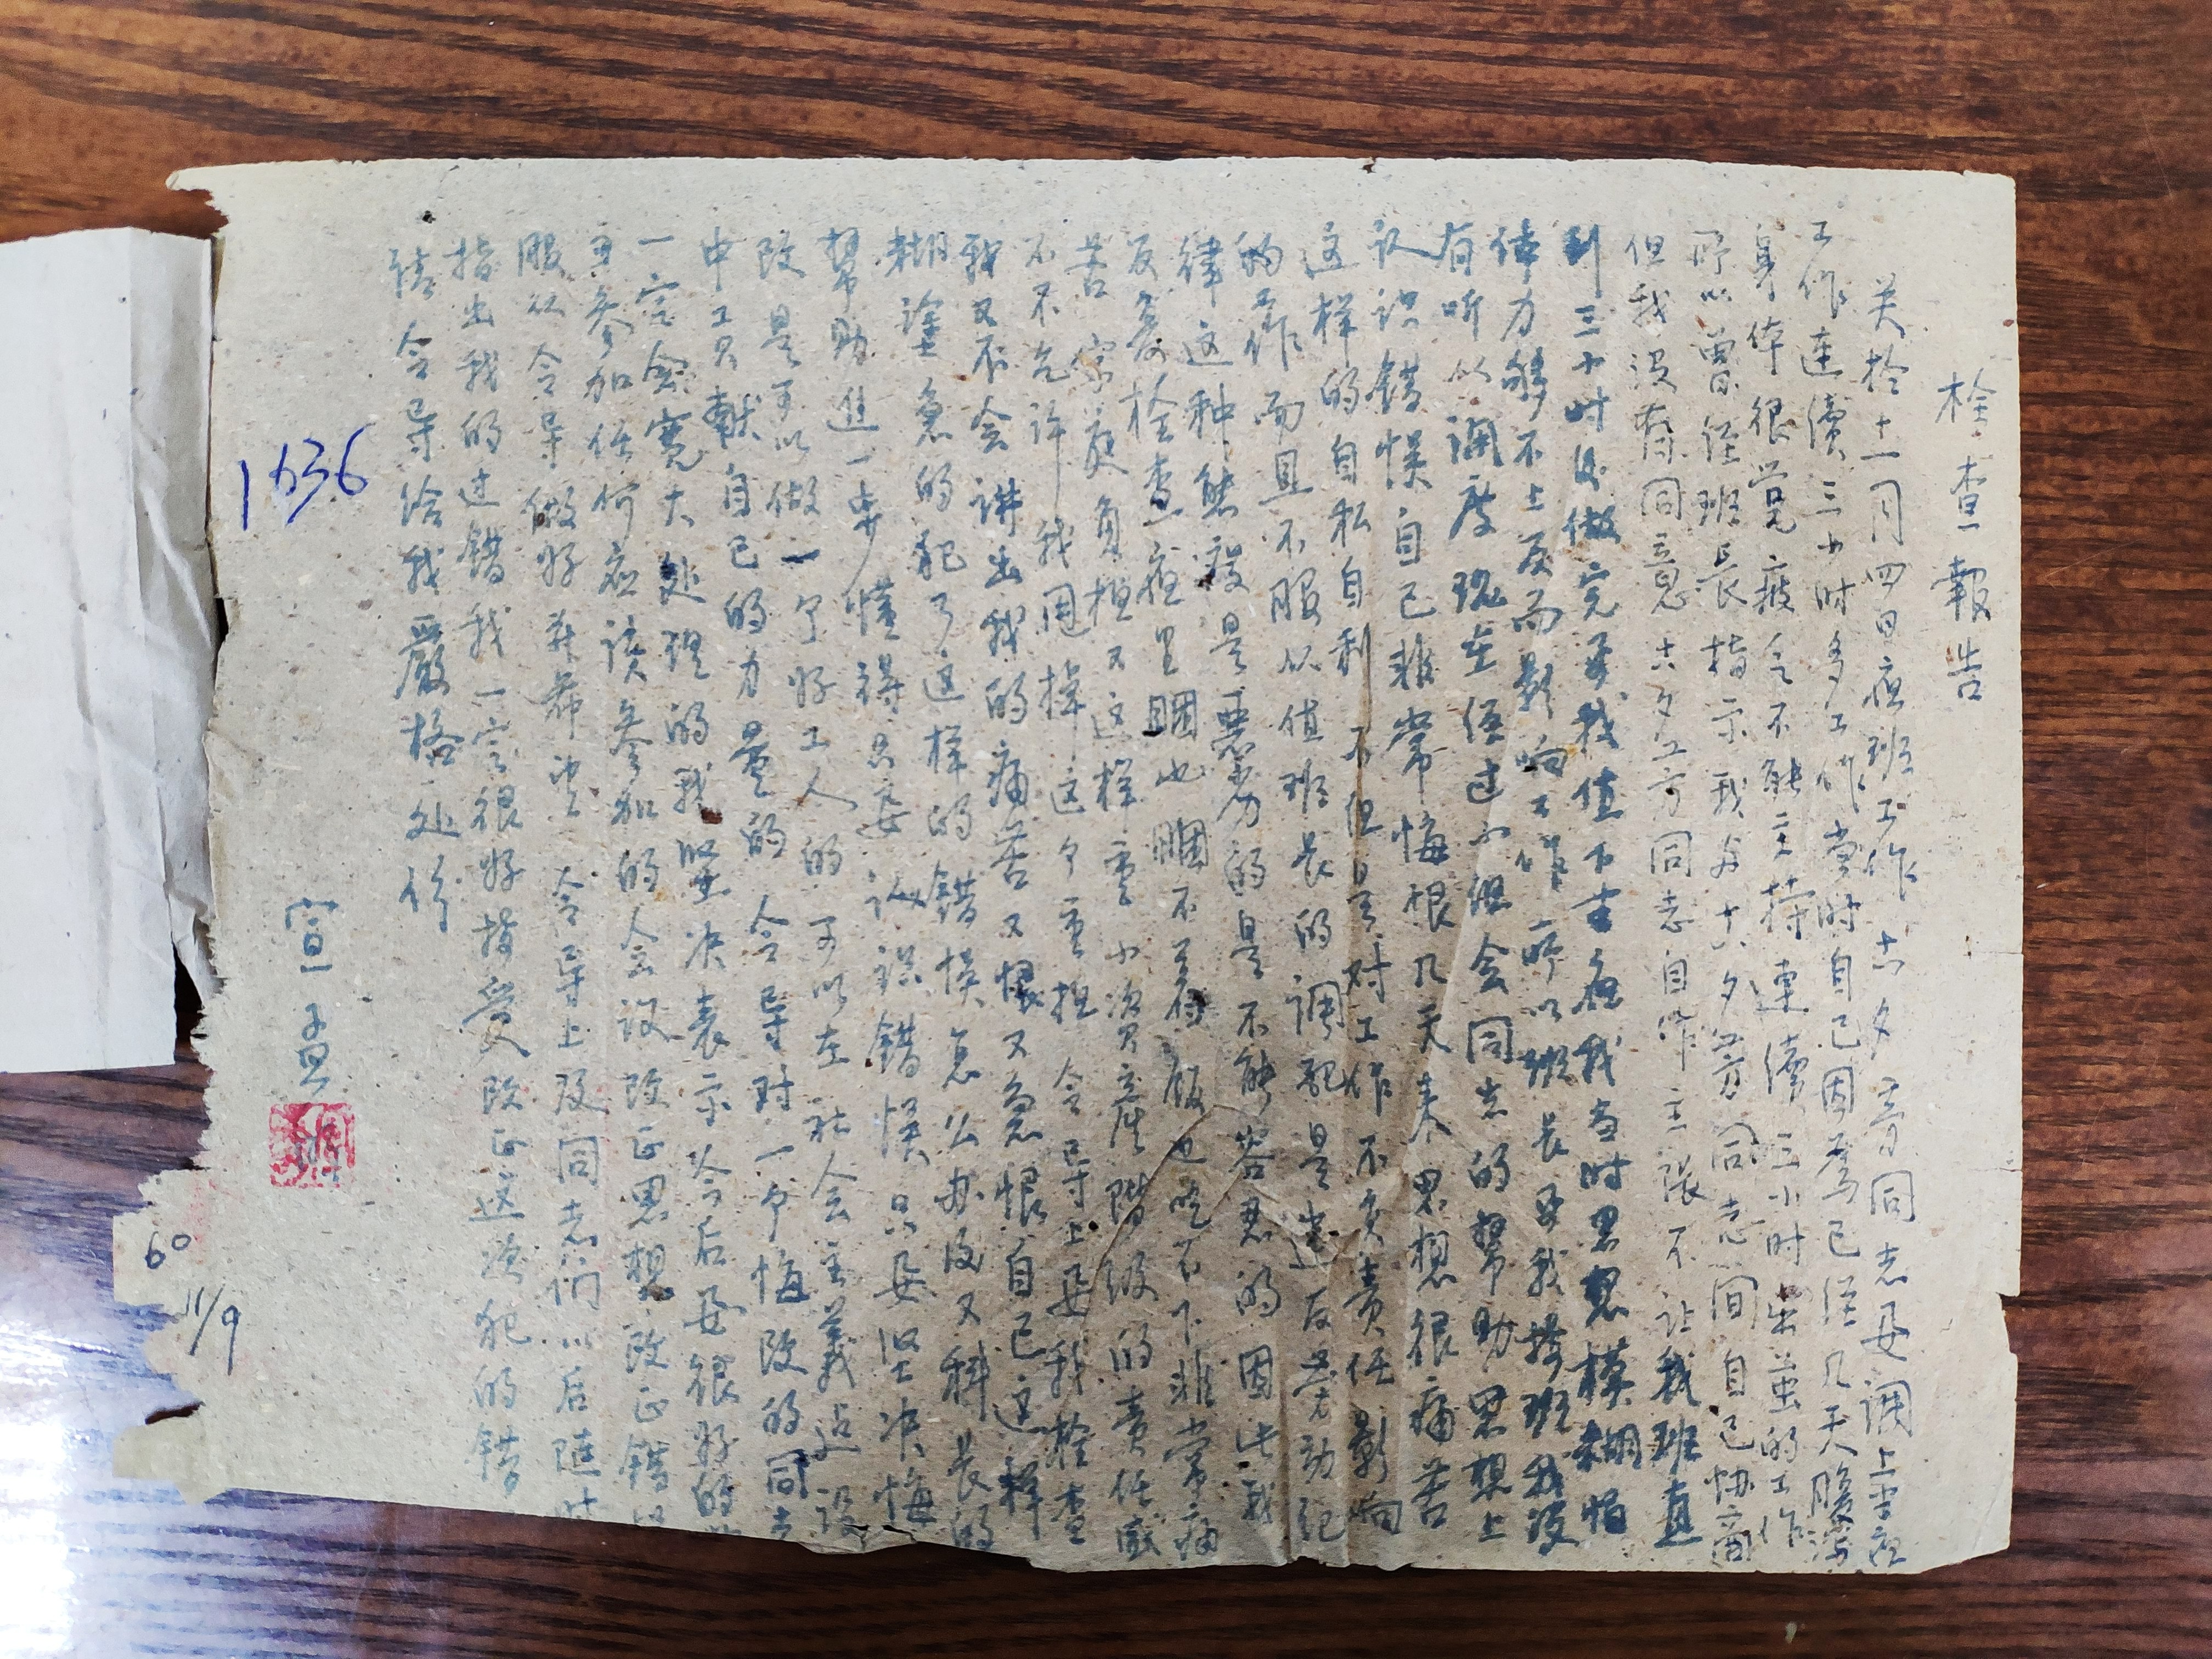 检查報告
关於十一月四日夜班工作 同志及调上重夜
工作連續三小时多工作当时自己因為已经几天腹瀉
身体很觉疲乏不能主持連續三小时出茧的工作
所以曾经班長指示我与 同志间自己协商
但我没有同意 同志自作主張不让我班直
到三小时後做完要我值下去夜我当时思想模糊怕
体力够不上反而影响工作所以班長要我接班我没
有听从调度现在经过小组会同志的幫助思想上
认识错悮自己非常悔恨几天来思想很痛苦
这样的自私自利不但是对工作不负責任影响
的工作而且不服从值班長的调配是违反劳动纪
律这种態度是悪劣的是不能容忍的因此我
反复检查夜里睏也睏不着飯也吃不下非常痛
苦 家庭負担又这样重 小资产階级的責任感
不不允许我囬掉这个重担 令导上要我检查
我又不会讲出我的痛苦又恨又急恨自己这样
糊塗急的犯了这样的錯悮怎么办没又科長的
幫助進一步懂得只要认识錯悮只要坚决悔
改是可以做一个好工人的可以在社会主義込設
中工貝献自己的力量的令导对一个悔改的同志
一定会寛大处理的我坚决表示今后要很好的
要参加任何应该参加的会议改正思想改正錯
服从令导做好 令导上及同志们以后随时
指出我的过錯我一定很好接受改正这次犯的錯
請令导给我嚴格处份
宣
1636
60
11/9